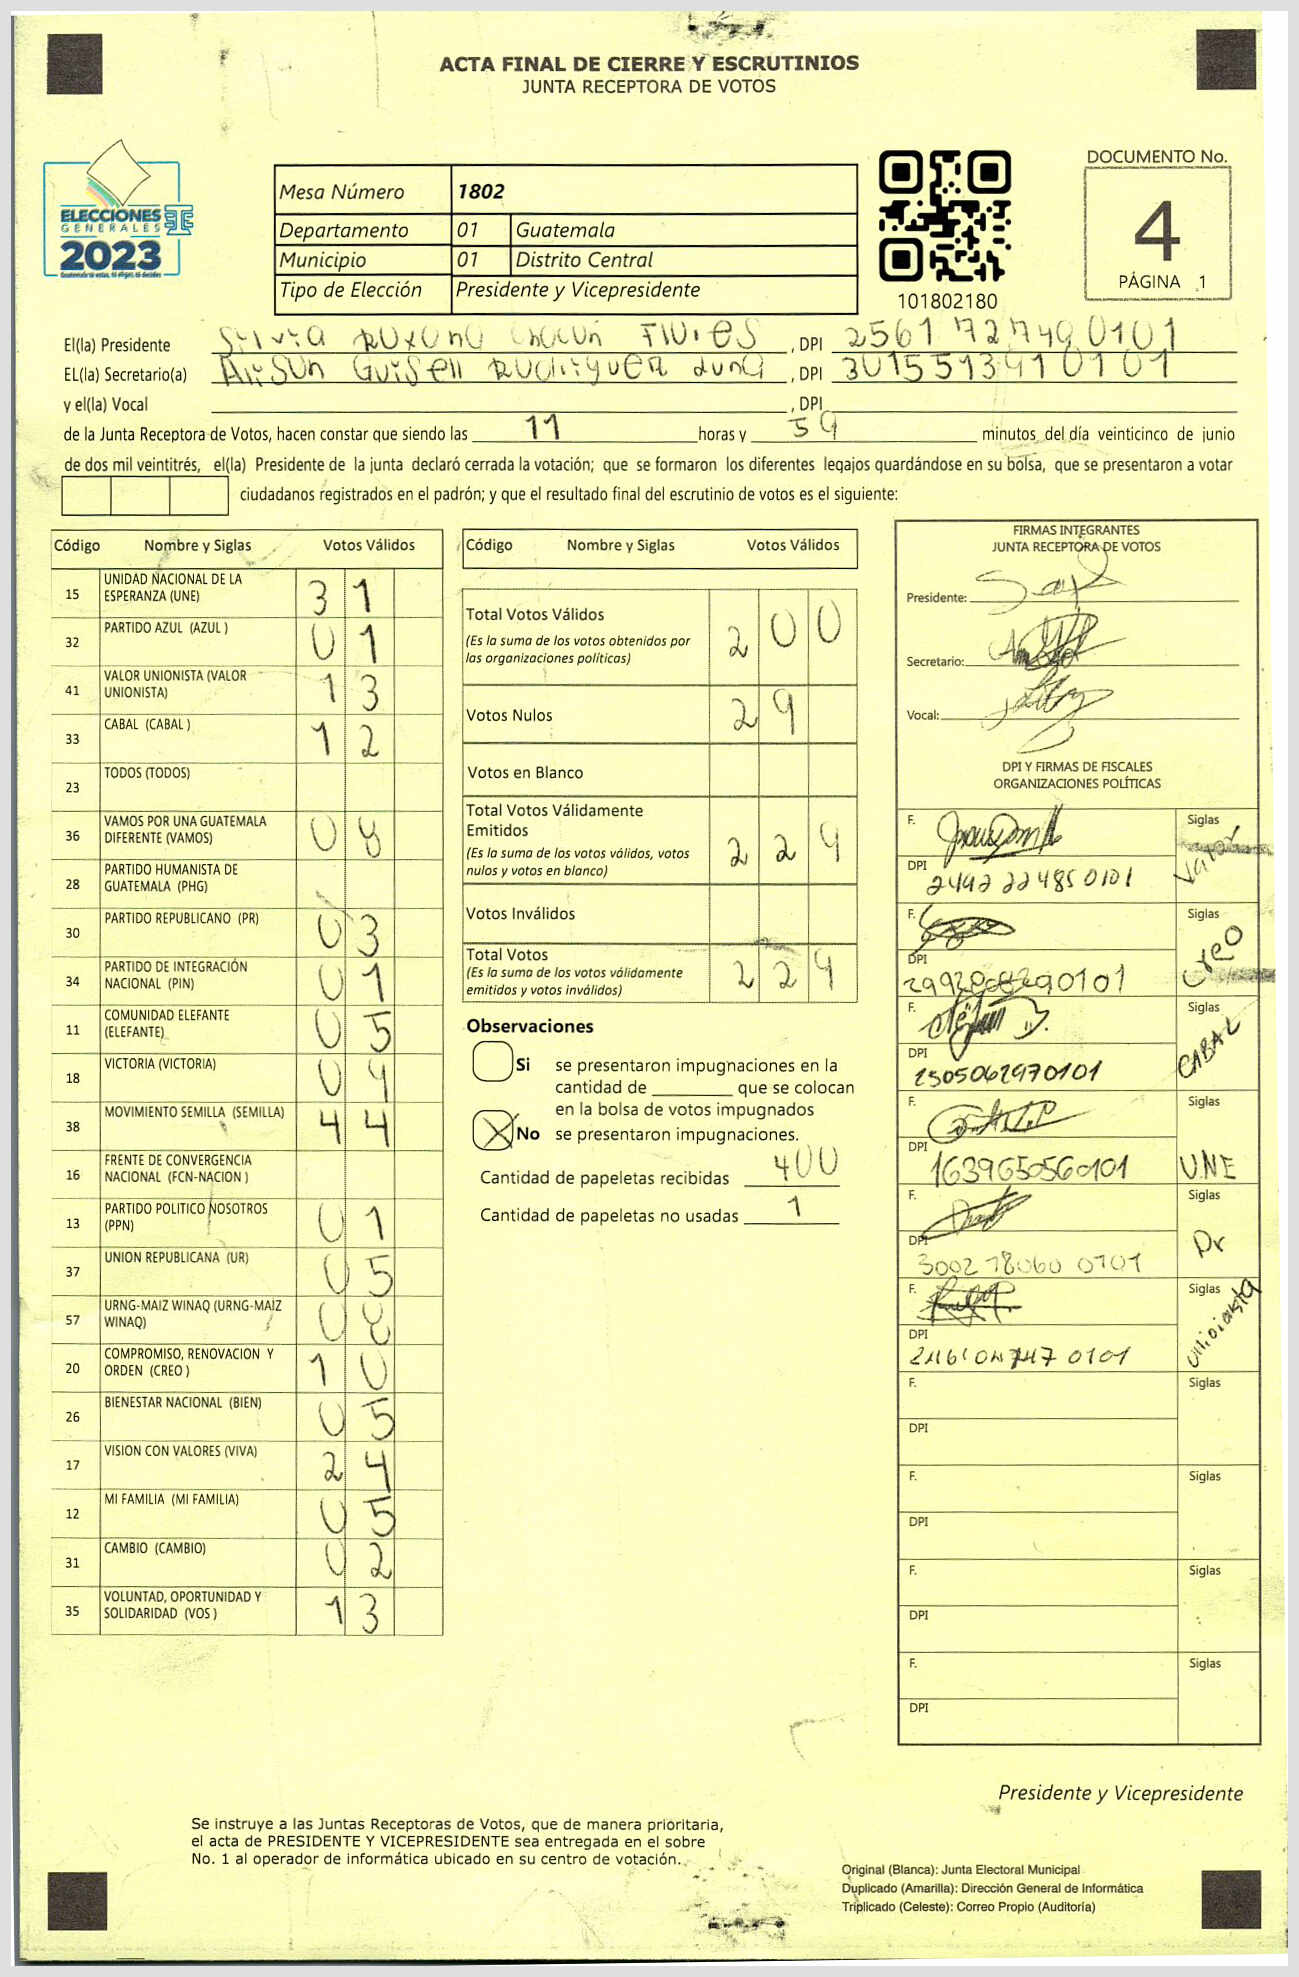 ACTA FINAL DE CIERRE Y ESCRUTINIOS
JUNTA RECEPTORA DE VOTOS
ELECCIONES
GENERALES
2023
Mesa Número 1802
Departamento 01 Guatemala
Municipio 01 Distrito Central
Tipo de Elección Presidente y Vicepresidente
101802180
DOCUMENTO No.
4
PÁGINA 1
El(la) Presidente Silvia Roxana Chacón Flores, DPI 2561 72749 0101
EL(la) Secretario(a) Alison Guisell Rodriguez Luna, DPI
y el(la) Vocal , DPI
de la Junta Receptora de Votos, hacen constar que siendo las 11 horas y 59 minutos del día veinticinco de junio
de dos mil veintitrés, el(la) Presidente de la junta declaró cerrada la votación; que se formaron los diferentes legajos quardándose en su bolsa, que se presentaron a votar
ciudadanos registrados en el padrón; y que el resultado final del escrutinio de votos es el siguiente:
Código Nombre y Siglas Votos Válidos
15 UNIDAD NACIONAL DE LA ESPERANZA (UNE) 31
32 PARTIDO AZUL (AZUL ) 01
41 VALOR UNIONISTA (VALOR UNIONISTA) 13
33 CABAL (CABAL ) 12
23 TODOS (TODOS)
36 VAMOS POR UNA GUATEMALA DIFERENTE (VAMOS) 08
28 PARTIDO HUMANISTA DE GUATEMALA (PHG)
30 PARTIDO REPUBLICANO (PR) 03
34 PARTIDO DE INTEGRACIÓN NACIONAL (PIN) 01
11 COMUNIDAD ELEFANTE (ELEFANTE) 05
18 VICTORIA (VICTORIA) 09
38 MOVIMIENTO SEMILLA (SEMILLA) 44
16 FRENTE DE CONVERGENCIA NACIONAL (FCN-NACION )
13 PARTIDO POLITICO NOSOTROS (PPN) 01
37 UNION REPUBLICANA (UR) 05
57 URNG-MAIZ WINAQ (URNG-MAIZ WINAQ) 08
20 COMPROMISO, RENOVACION Y ORDEN (CREO ) 10
26 BIENESTAR NACIONAL (BIEN) 05
17 VISION CON VALORES (VIVA) 24
12 MI FAMILIA (MI FAMILIA) 05
31 CAMBIO (CAMBIO) 02
35 VOLUNTAD, OPORTUNIDAD Y SOLIDARIDAD (VOS ) 13
Código Nombre y Siglas Votos Válidos
Total Votos Válidos 200
(Es la suma de los votos obtenidos por
las organizaciones políticas)
Votos Nulos 29
Votos en Blanco
Total Votos Válidamente
Emitidos 229
(Es la suma de los votos válidos, votos
nulos y votos en blanco)
Votos Inválidos
Total Votos 229
(Es la suma de los votos válidamente
emitidos y votos inválidos)
Observaciones
Si se presentaron impugnaciones en la
cantidad de ________ que se colocan
en la bolsa de votos impugnados
No se presentaron impugnaciones.
Cantidad de papeletas recibidas 400
Cantidad de papeletas no usadas 1
FIRMAS INTEGRANTES
JUNTA RECEPTORA DE VOTOS
Presidente:
Secretario:
Vocal:
DPI Y FIRMAS DE FISCALES
ORGANIZACIONES POLÍTICAS
F. Siglas Valor
DPI 2492 22485 0101
F. Siglas Creo
DPI
F. Siglas CABAL
DPI 2505062970101
F. Siglas UNE
DPI 1639650560101
F. Siglas Pr
DPI 3002 18060 0101
F. Siglas Unionista
DPI
F. Siglas
DPI
F. Siglas
DPI
F. Siglas
DPI
F. Siglas
DPI
Presidente y Vicepresidente
Se instruye a las Juntas Receptoras de Votos, que de manera prioritaria,
el acta de PRESIDENTE Y VICEPRESIDENTE sea entregada en el sobre
No. 1 al operador de informática ubicado en su centro de votación.
Original (Blanca): Junta Electoral Municipal
Duplicado (Amarilla): Dirección General de Informática
Triplicado (Celeste): Correo Propio (Auditoría)